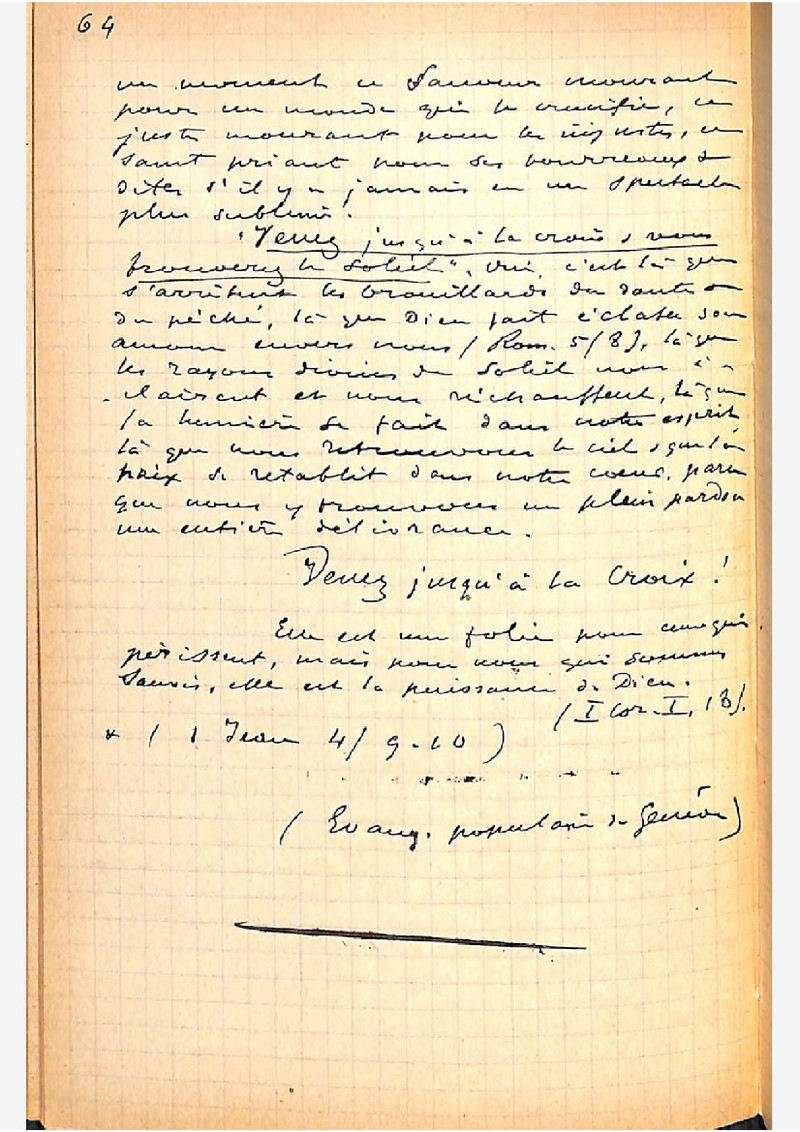 64
un moment ce Sauveur mourant
pour un monde qui le crucifie, ce
juste mourant pour les injustes, ce
saint priant pour ses bourreaux &
dites s'il y a jamais eu un spectacle
plus sublime !
"Venez jusqu'à la croix & vous
trouverez le Soleil". Oui, c'est là que
s'arrêtent les brouillards du doute &
du péché, là que Dieu fait éclater son
amour envers nous (Rom. 5/8), là que
les rayons divins du Soleil nous é-
clairent et nous réchauffent, là que
la lumière se fait dans notre esprit
là que nous retrouvons le ciel & que la
paix se rétablit dans notre coeur, parce
que nous y trouvons un plein pardon
une entière délivrance.
Venez jusqu'à la Croix !
Elle est une folie pour ceux qui
périssent, mais pour nous qui sommes
sauvés, elle est la puissance de Dieu.
(I Cor. I, 18).
* ( 1 Jean 4/ 9-10 )
( Evang. populaire de Genève )